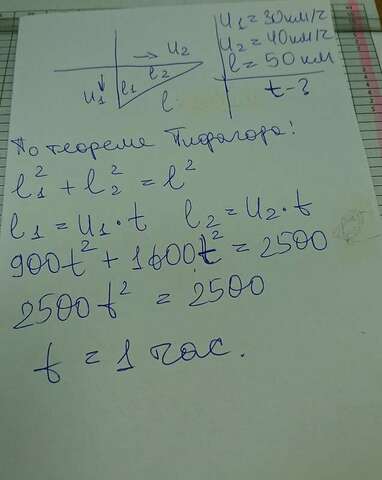 u₁ = 30 км/г
u₂ = 40 км/г
l = 50 км
t - ?
→ u₂
u₁ ↓ l₁ l₂
l
По теореме Пифагора!
l₁² + l₂² = l²
l₁ = u₁ · t l₂ = u₂ · t
900t² + 1600t² = 2500
2500t² = 2500
t = 1 час.